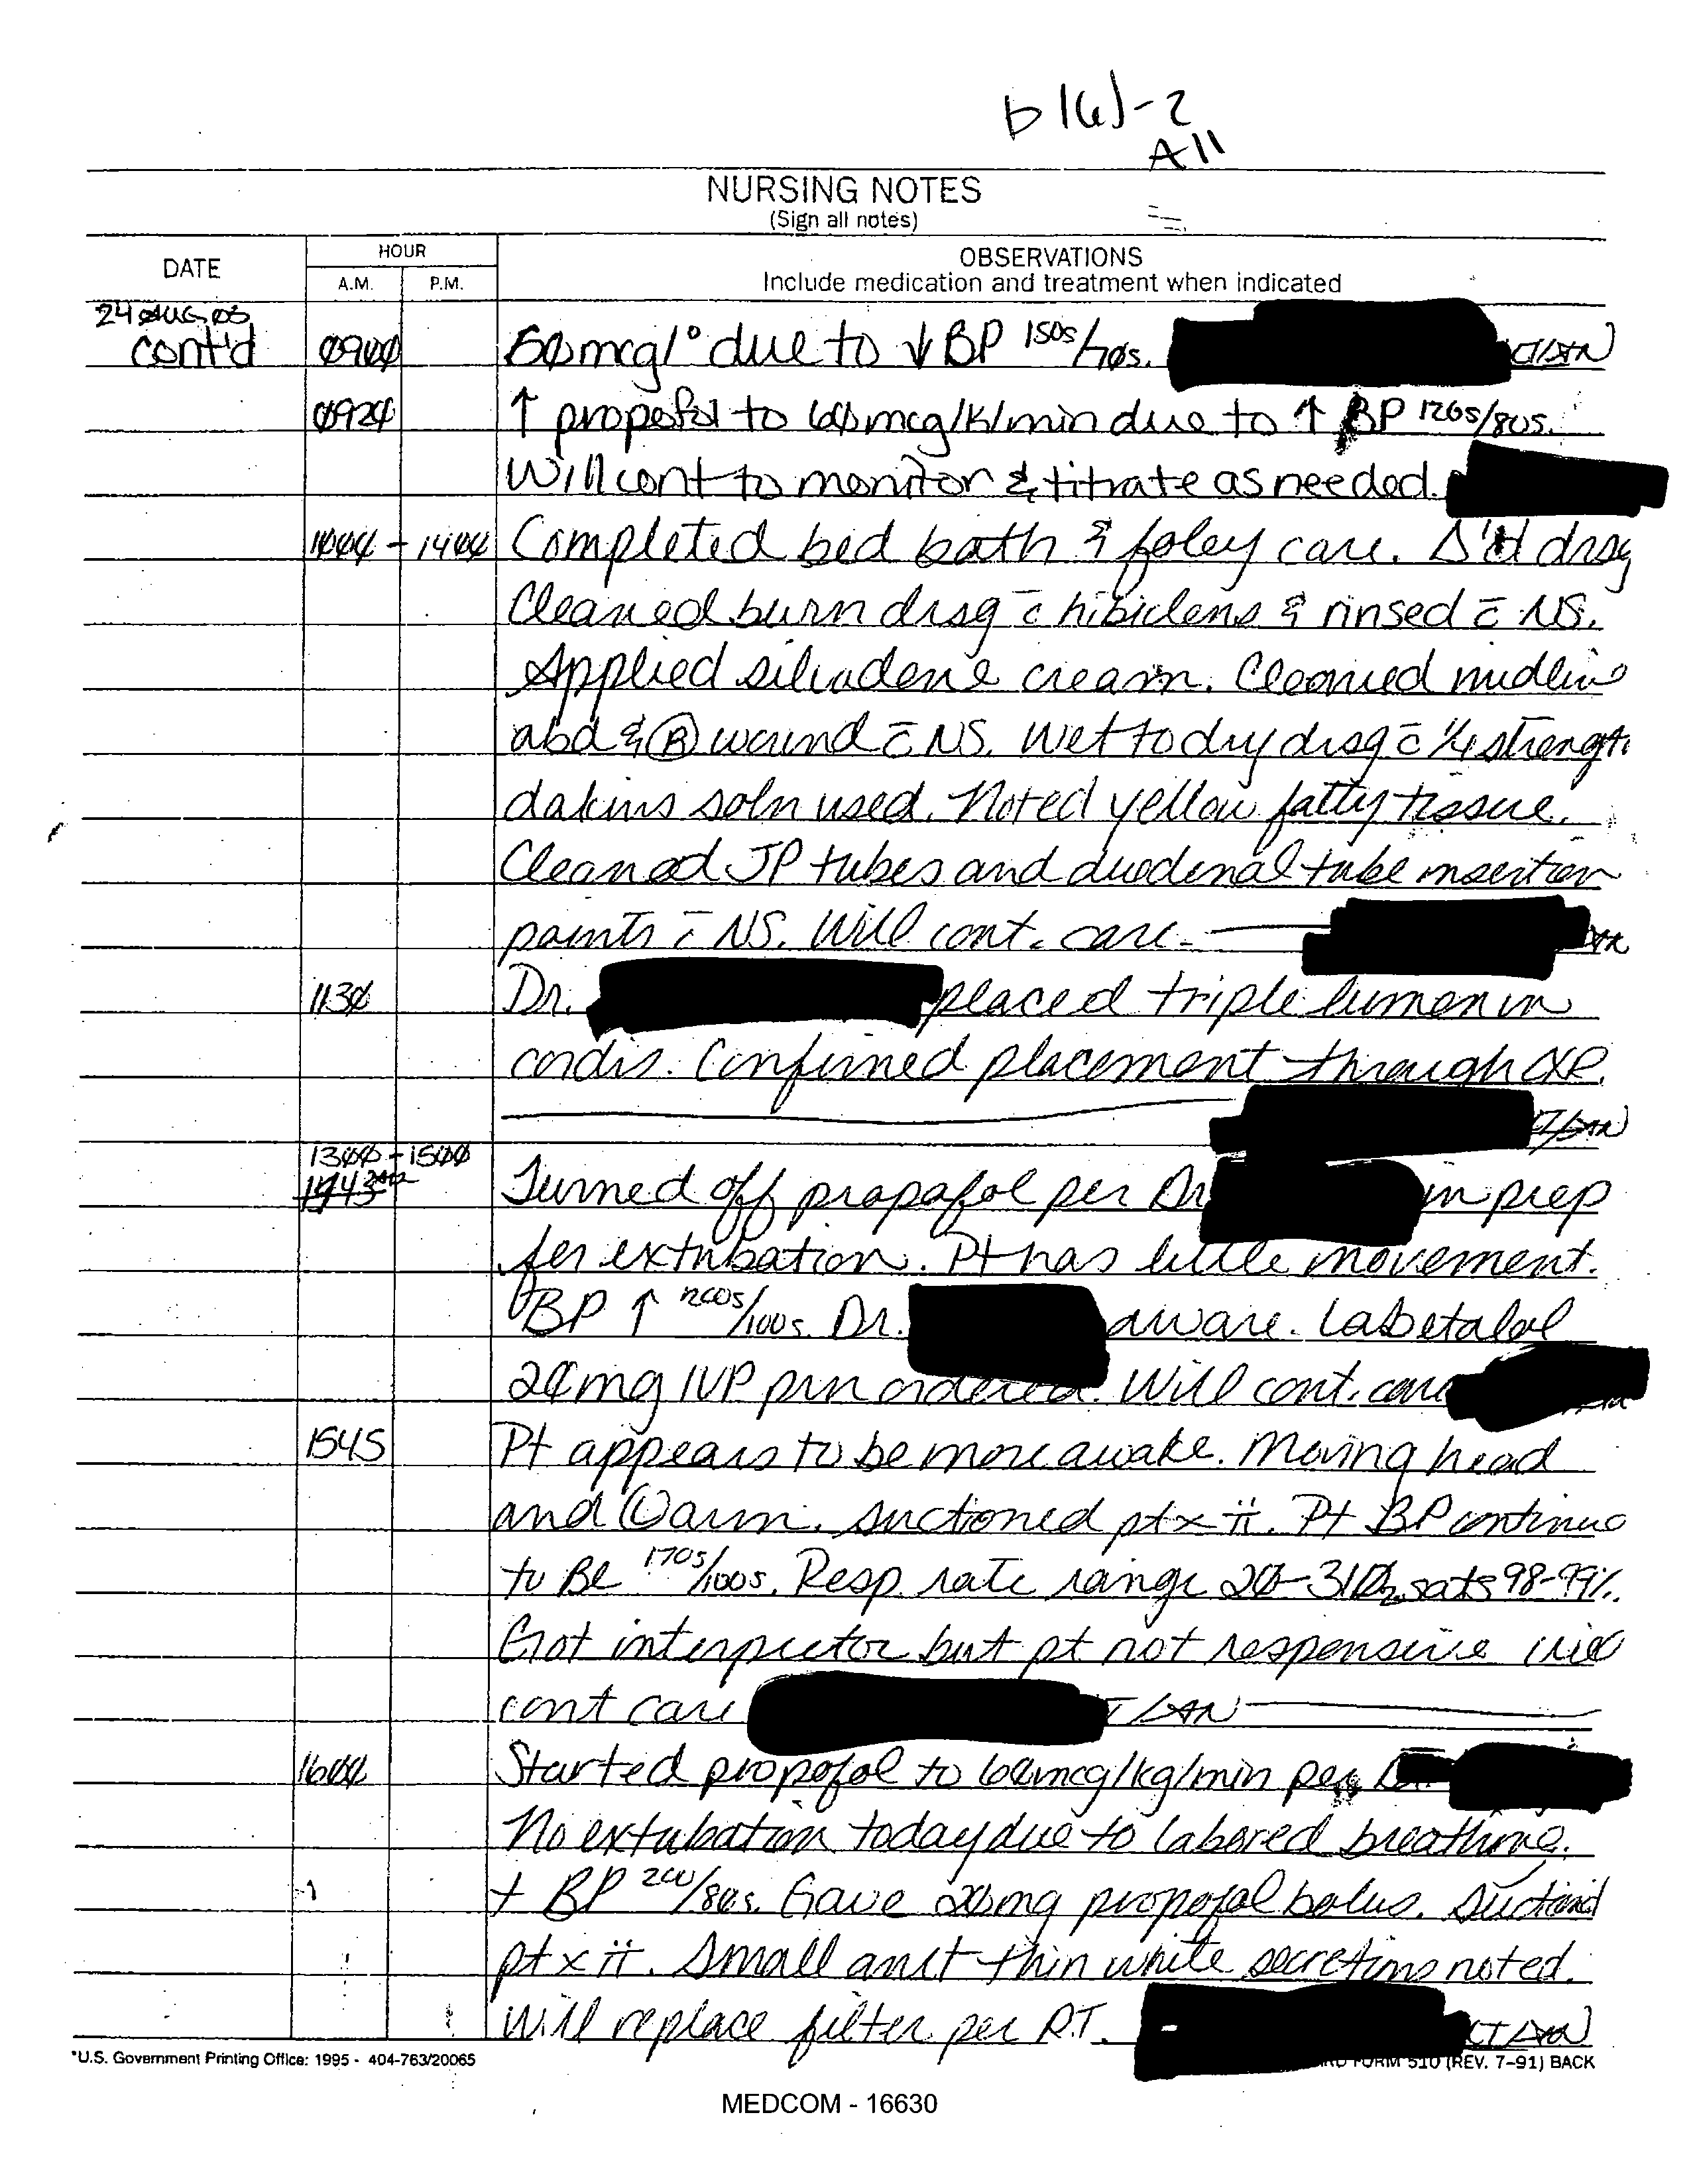 b(6)-2
All
NURSING NOTES
(Sign all notes)
DATE
HOUR
OBSERVATIONS
A.M.
P.M.
Include medication and treatment when indicated
24 AUG 03
cont'd
0900
50mcg/° due to ↓ BP 150s/70s.
0920
↑ propofol to 60mcg/K/min due to ↑ BP /80s.
Will cont to monitor & titrate as needed.
1000 - 1400
Completed bed bath & foley care. Δ'd drsg
Cleaned burn drsg c̄ hibiclens & rinsed c̄ NS.
Applied silvadene cream. Cleaned midline
abd & Ⓡ wound c̄ NS. Wet to dry drsg c̄ 1/4 strength
dakins soln used. Noted yellow fatty tissue.
Cleaned JP tubes and duodenal tube insertion
points c̄ NS. Will cont. care.
1130
Dr. placed triple lumen in
cordis. Confirmed placement through CXR.
1300 - 1500
Turned off propofol per Dr in prep
for extubation. Pt has little movement.
BP ↑ 200s/100s. Dr. aware. Labetalol
20mg IVP prn ordered. Will cont. care
1545
Pt appears to be more awake. Moving head
and Ⓛ arm. Suctioned pt x ii. Pt BP continue
to Be 170s/100s. Resp rate range 20-31 O₂ sats 98-99%.
Got interpretor but pt not responsive will
cont care
1600
Started propofol to 60mcg/kg/min per Dr.
No extubation today due to labored breathing.
+ BP 200/80s. Gave 20mg propofol bolus. Suctioned
pt x ii. Small amt thin white secretions noted.
Will replace filter per R.T.
*U.S. Government Printing Office: 1995 - 404-763/20065
FORM 510 (REV. 7-91) BACK
MEDCOM - 16630